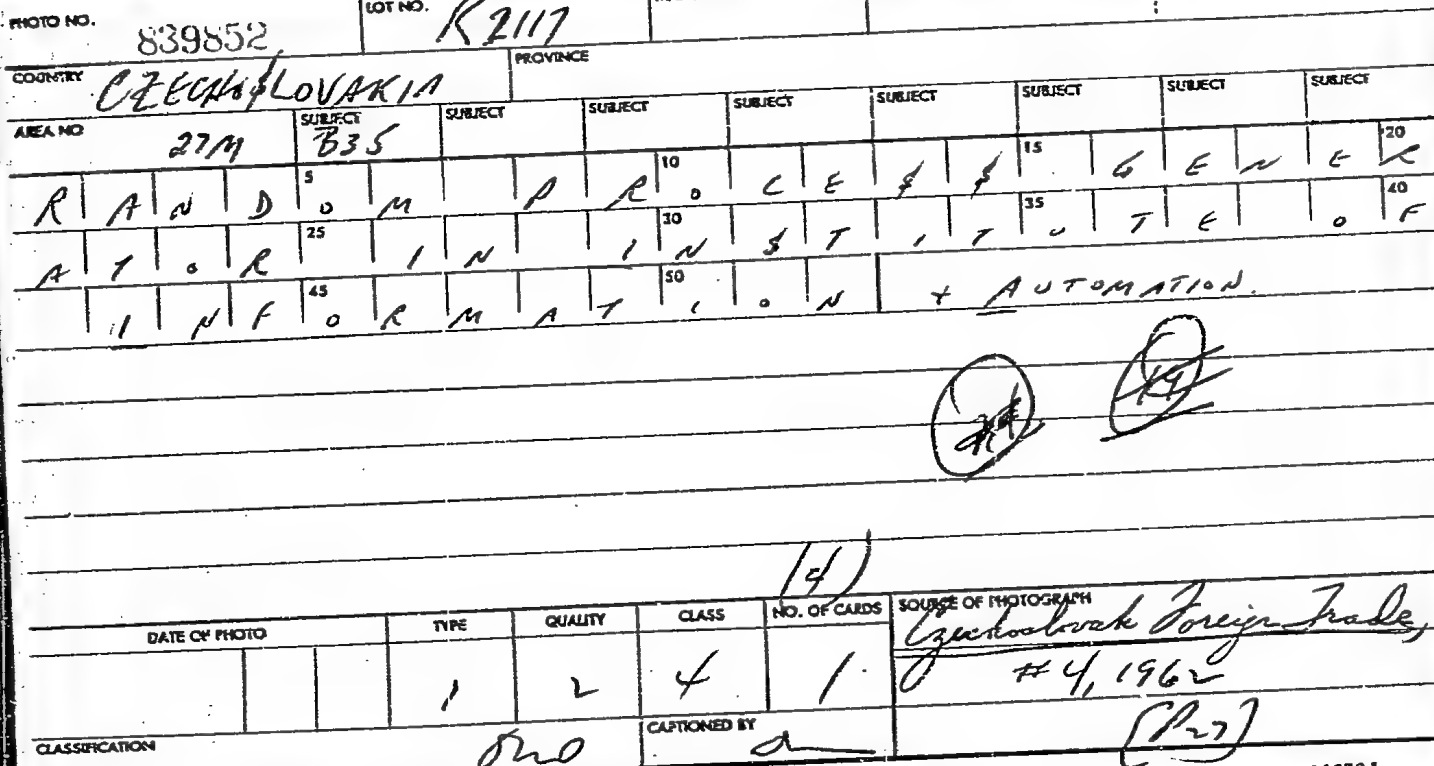 PHOTO NO. 839852 LOT NO. K2117
COUNTRY CZECHOSLOVAKIA PROVINCE
AREA NO 27M SUBJECT B35 SUBJECT SUBJECT SUBJECT SUBJECT SUBJECT SUBJECT SUBJECT
RANDOM PROCESS GENER
5 10 15 20
ATOR IN INSTITUTE OF
25 30 35 40
INFORMATION + AUTOMATION.
45 50
(4)
DATE OF PHOTO TYPE QUALITY CLASS NO. OF CARDS SOURCE OF PHOTOGRAPH
1 2 4 1 Czechoslovak Foreign Trade,
#4, 1962
CLASSIFICATION CAPTIONED BY [P27]